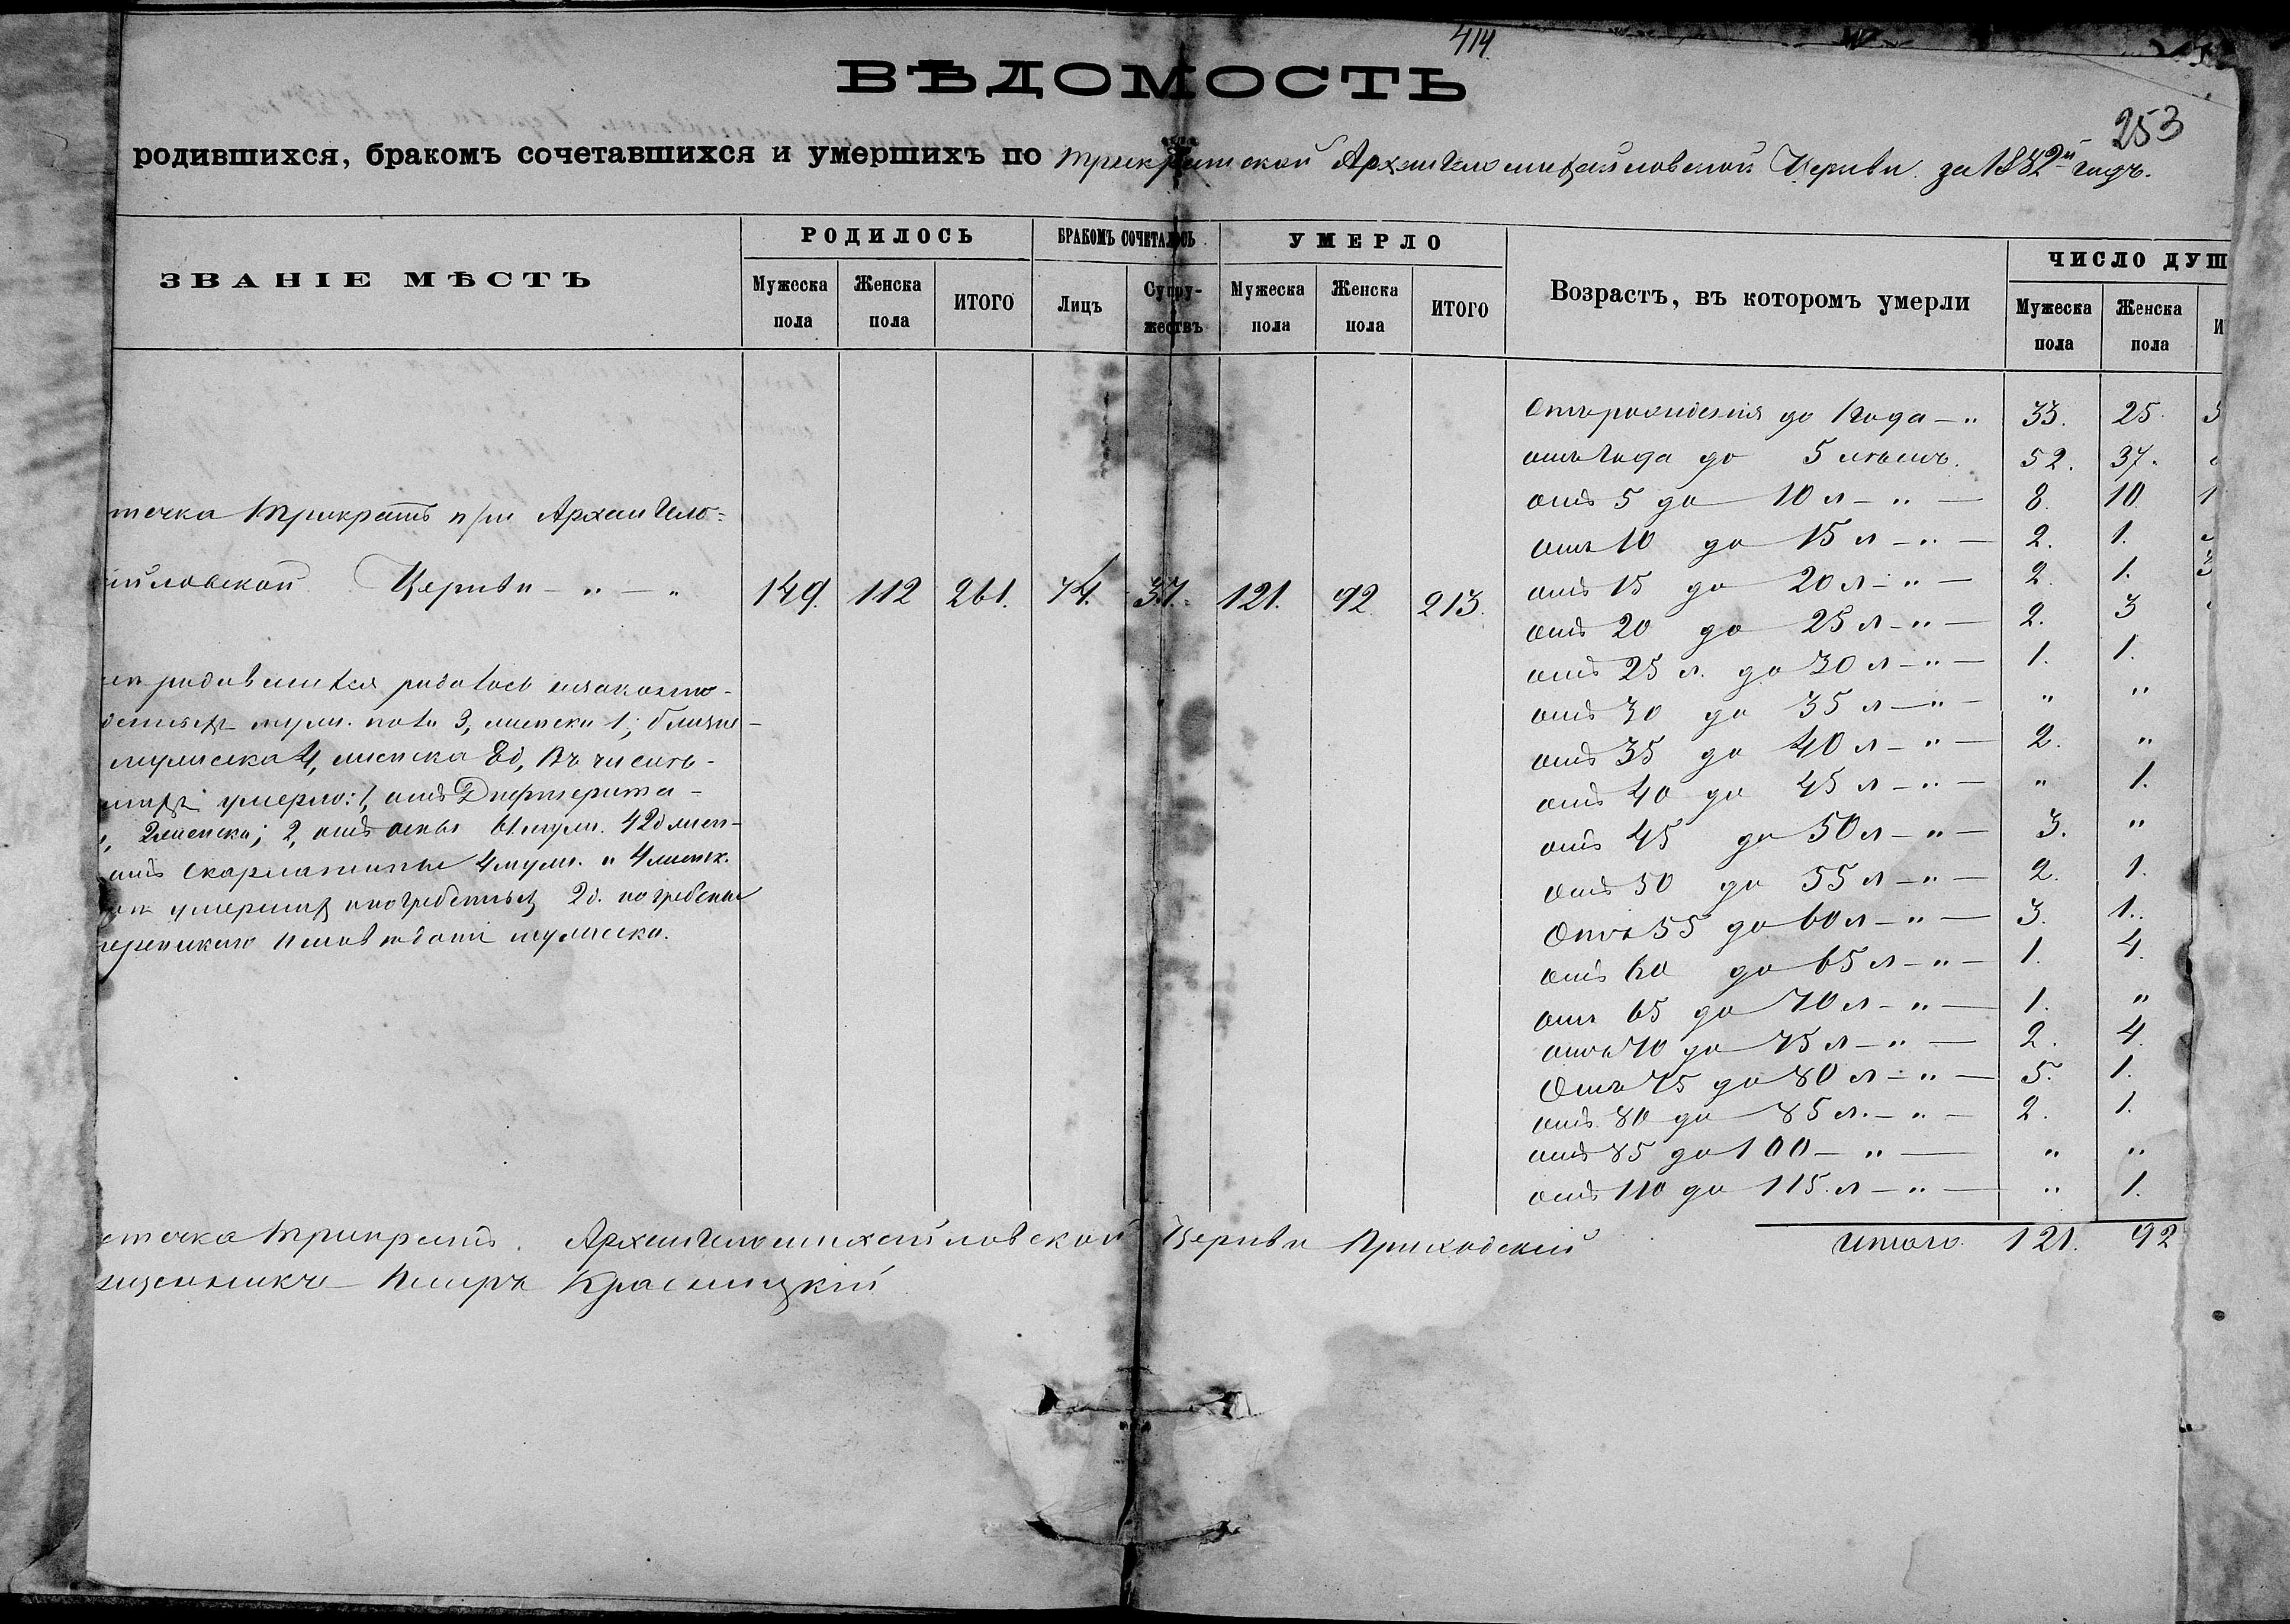 414
ВѢДОМОСТЬ
253
родившихся, бракомъ сочетавшихся и умершихъ по Трикратской Архангеломихайловской Церкви за 1882й годъ.
ЗВАНІЕ МѢСТЪ
РОДИЛОСЬ
Мужеска пола
Женска пола
ИТОГО
БРАКОМЪ СОЧЕТАЛОСЬ
Лицъ
Супружествъ
УМЕРЛО
Мужеска пола
Женска пола
ИТОГО
Возрастъ, въ которомъ умерли
ЧИСЛО ДУШ
Мужеска пола
Женска пола
И
течка Трикратъ при Архангело-
йловской Церкви - " - "
149. 112 261. 74. 37. 121. 92. 213.
родившихся родилось незаконно-
муж. пола 3, женска 1; близне-
мужеска 4, женска 8д, Въ числѣ
умерло: 1, отъ Дифтерита
2 женска; 2, отъ оспы 61 муж. 42д жен-
отъ Скарлатины 4 муж. и 4 женск.
умершихъ и погребенныхъ 2д. погребены
мужеска.
Отъ рожденія до 1 года - " 33. 25. 5
отъ года до 5 лѣтъ. 52. 37.
отъ 5 до 10 л - " - 8. 10. 1
отъ 10 до 15 л - " - 2. 1.
отъ 15 до 20 л - " - 2. 1. 3
отъ 20 до 25 л - " - 2. 3
отъ 25 л. до 30 л - " - 1. 1.
отъ 30 до 35 л - " - " "
отъ 35 до 40 л - " - 2. "
отъ 40 до 45 л - " - " 1.
отъ 45 до 50 л - " - 3. "
отъ 50 до 55 л - " - 2. 1.
Отъ 55 до 60 л - " - 3. 1.
отъ 60 до 65 л - " - 1. 4.
отъ 65 до 70 л - " - 1. "
отъ 70 до 75 л - " - 2. 4.
Отъ 75 до 80 л - " - 5. 1.
отъ 80 до 85 л. - " - 2. 1.
отъ 85 до 100 - " - " "
отъ 110 до 115. л - " - " 1.
Итого 121. 92
стечка Трикратъ. Архангеломихайловской Церкви Приходскій
щенникъ Петръ Красницкій